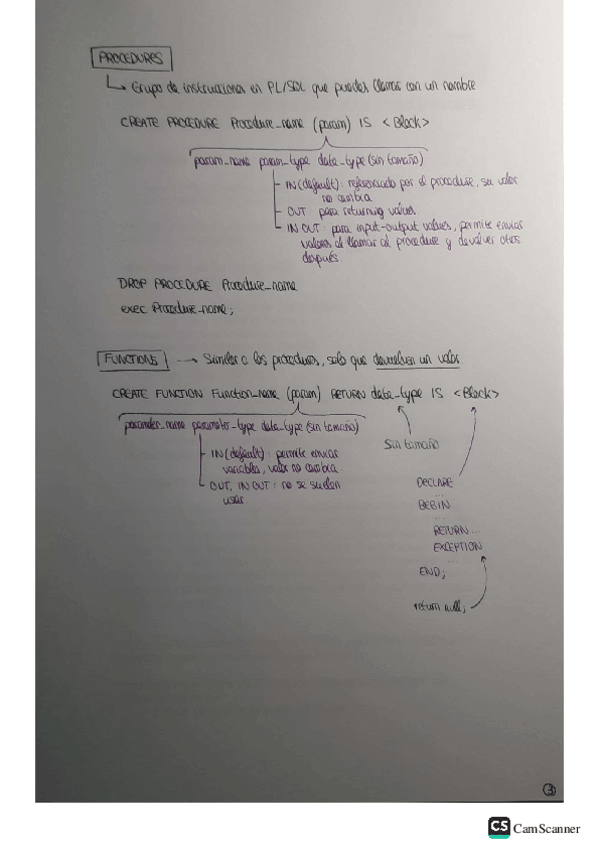 PROCEDURES
Grupo de instrucciones en PL/SQL que puedes llamar con un nombre
CREATE PROCEDURE Procedure_name (param) IS <Block>
param_name param_type data_type (sin tamaño)
IN (default): referenciado por el procedure, su valor
no cambia
OUT para returning values
IN OUT: para input-output values, permite enviar
valores al llamar al procedure y devolver otros
después.
DROP PROCEDURE Procedure_name
exec Procedure_name;
FUNCTIONS → Similar a los procedures, solo que devuelven un valor
CREATE FUNCTION Function_name (param) RETURN data_type IS <Block>
parameter_name parameter_type data_type (sin tamaño)
Sin tamaño
IN (default): permite enviar
variables, valor no cambia.
OUT, IN OUT: no se suelen
usar
DECLARE
...
BEGIN
...
RETURN ...
EXCEPTION
...
END;
return null;
3
CS CamScanner